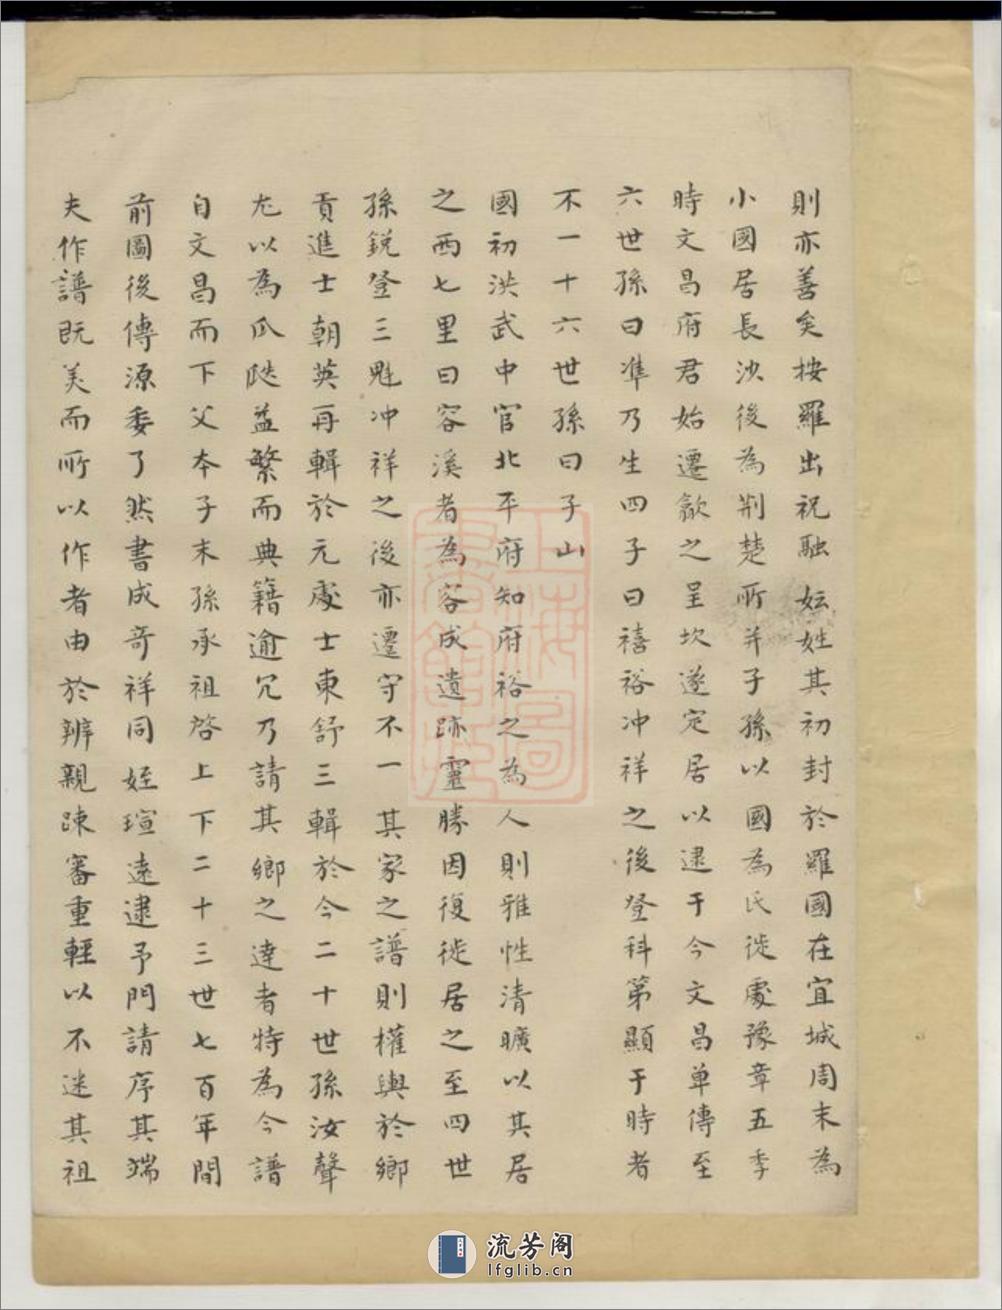 則亦善矣按羅出祝融妘姓其初封於羅國在宜城周末為
小國居長沙後為荆楚所并子孫以國為氏徙處豫章五季
時文昌府君始遷歙之呈坎遂定居以逮于今文昌单傳至
六世孫曰準乃生四子曰禧裕冲祥之後登科第顯于時者
不一十六世孫曰子山
國初洪武中官北平府知府裕之為人則雅性清曠以其居
之西七里曰容溪者為容成遺跡靈勝因復徙居之至四世
孫銳登三魁冲祥之後亦遷守不一其家之譜則權輿於鄉
貢進士朝英再輯於元處士東舒三輯於今二十世孫汝聲
尤以為瓜瓞益繁而典籍逾冗乃請其鄉之達者特為今譜
自文昌而下父本子末孫承祖啓上下二十三世七百年間
前圖後傳源委了然書成奇祥同姪瑄遠逮予門請序其端
夫作譜既美而所以作者由於辨親踈審重輕以不迷其祖
上海圖書館藏
流芳阁
lfglib.cn